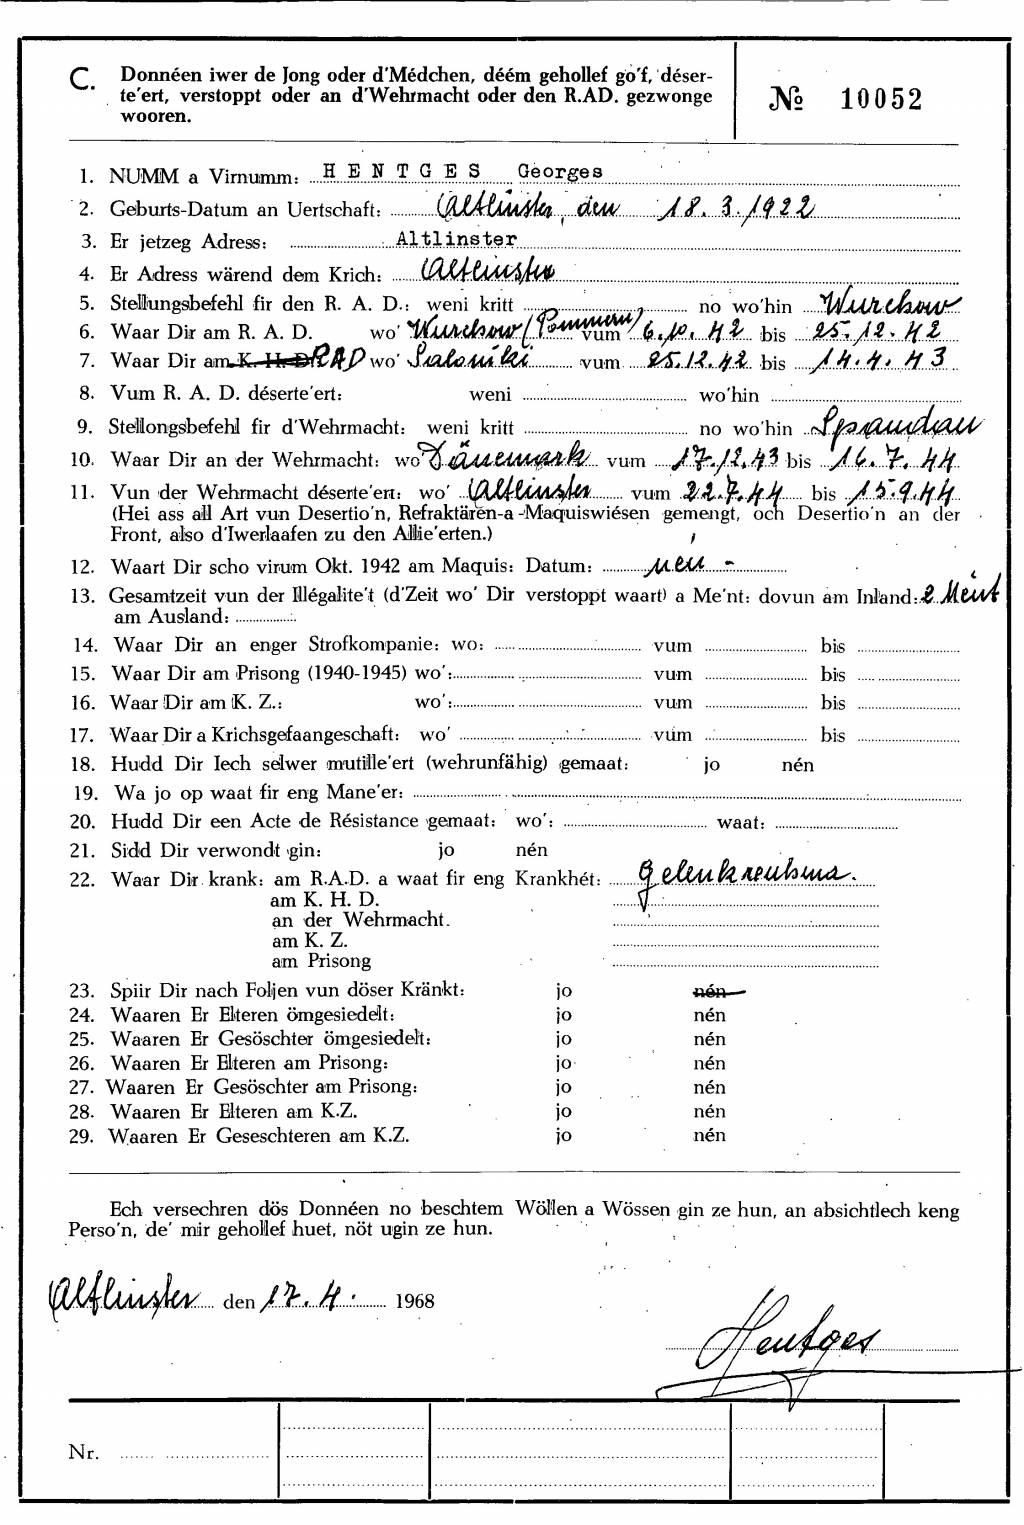 C. Donnéen iwer de Jong oder d'Médchen, déém gehollef gó'f, déser-
te'ert, verstoppt oder an d'Wehrmacht oder den R.AD. gezwonge
wooren.
№ 10052
1. NUMM a Virnumm: HENTGES Georges
2. Geburts-Datum an Uertschaft: Altlinster, den 18.3.1922
3. Er jetzeg Adress: Altlinster
4. Er Adress wärend dem Krich: Altlinster
5. Stellungsbefehl fir den R. A. D.: weni kritt no wo'hin Wurchow
6. Waar Dir am R. A. D. wo' Wurchow (Pommern) vum 6.10.42 bis 25.12.42
7. Waar Dir am K. H. D. RAD wo' Saloniki vum 25.12.42 bis 14.4.43
8. Vum R. A. D. déserte'ert: weni wo'hin
9. Stellongsbefehl fir d'Wehrmacht: weni kritt no wo'hin Spandau
10. Waar Dir an der Wehrmacht: wo Dänemark vum 17.12.43 bis 16.7.44
11. Vun der Wehrmacht déserte'ert: wo' Altlinster vum 22.7.44 bis 15.9.44
(Hei ass all Art vun Desertio'n, Refraktären-a-Maquiswiésen gemengt, och Desertio'n an der
Front, also d'Iwerlaafen zu den Allie'erten.)
12. Waart Dir scho virum Okt. 1942 am Maquis: Datum: nen -
13. Gesamtzeit vun der Illégalite't (d'Zeit wo' Dir verstoppt waart) a Me'nt: dovun am Inland: 2 Meint
am Ausland:
14. Waar Dir an enger Strofkompanie: wo: vum bis
15. Waar Dir am Prisong (1940-1945) wo': vum bis
16. Waar Dir am K. Z.: wo': vum bis
17. Waar Dir a Krichsgefaangeschaft: wo' vum bis
18. Hudd Dir Iech selwer mutille'ert (wehrunfähig) gemaat: jo nén
19. Wa jo op waat fir eng Mane'er:
20. Hudd Dir een Acte de Résistance gemaat: wo': waat:
21. Sidd Dir verwondt gin: jo nén
22. Waar Dir krank: am R.A.D. a waat fir eng Krankhét: Gelenkreuhma.
am K. H. D.
an der Wehrmacht.
am K. Z.
am Prisong
23. Spiir Dir nach Foljen vun döser Kränkt: jo nén
24. Waaren Er Elteren ömgesiedelt: jo nén
25. Waaren Er Gesöschter ömgesiedelt: jo nén
26. Waaren Er Elteren am Prisong: jo nén
27. Waaren Er Gesöschter am Prisong: jo nén
28. Waaren Er Elteren am K.Z. jo nén
29. Waaren Er Geseschteren am K.Z. jo nén
Ech versechren dös Donnéen no beschtem Wöllen a Wössen gin ze hun, an absichtlech keng
Perso'n, de' mir gehollef huet, nöt ugin ze hun.
Altlinster den 17.4. 1968
Hentges
Nr.